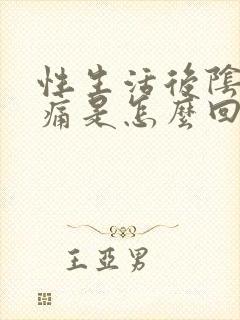 性生活後陰
痛是怎麼回
王亞男